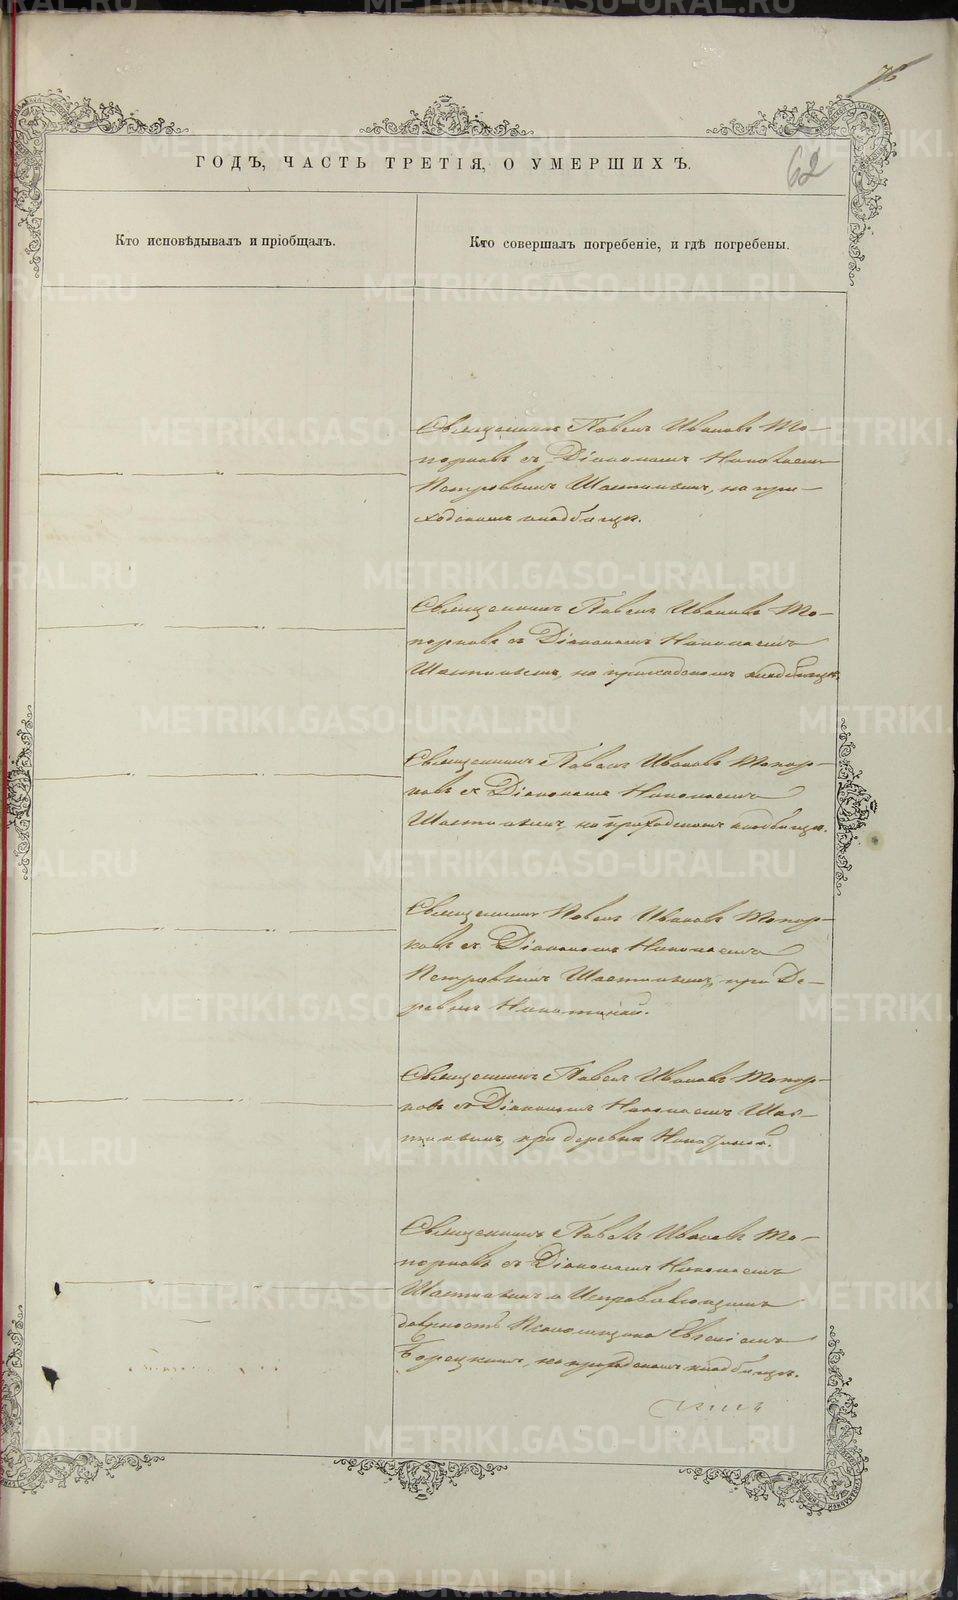 76
62
ГОДЪ, ЧАСТЬ ТРЕТІЯ, О УМЕРШИХЪ.
Кто исповѣдывалъ и пріобщалъ.
Кто совершалъ погребеніе, и гдѣ погребены.
Священникъ Павелъ Ивановъ То-
порковъ съ Діакономъ Николаемъ
Петровымъ на при-
ходскомъ кладбищѣ.
Священникъ Павелъ Ивановъ То-
порковъ съ Діакономъ Николаемъ
на приходскомъ кладбищѣ.
Священникъ Павелъ Ивановъ Топор-
ковъ съ Діакономъ Николаемъ
на приходскомъ кладбищѣ.
Священникъ Павелъ Ивановъ Топор-
ковъ съ Діакономъ Николаемъ
Петровымъ при Де-
ревнѣ
Священникъ Павелъ Ивановъ Топор-
ковъ съ Діакономъ Николаемъ
при деревнѣ
Священникъ Павелъ Ивановъ То-
порковъ съ Діакономъ Николаемъ
и Исправляющимъ
должность Псаломщика Евгеніемъ
на приходскомъ кладбищѣ.
METRIKI.GASO-URAL.RU